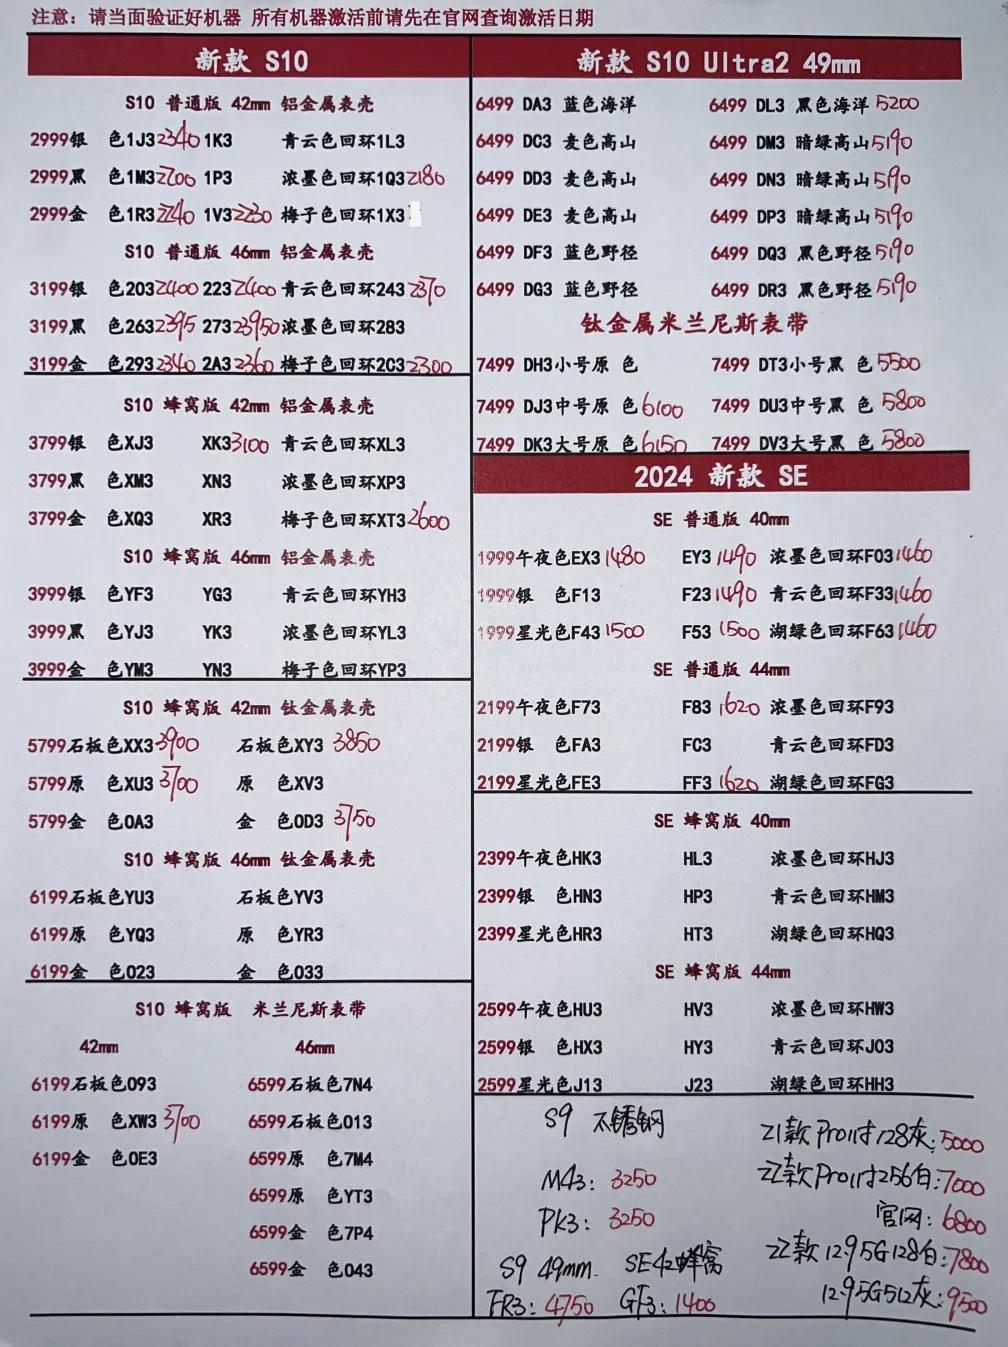 注意：请当面验证好机器 所有机器激活前请先在官网查询激活日期
新款 S10
S10 普通版 42mm 铝金属表壳
2999银 色1J3 2340 1K3 青云色回环1L3
2999黑 色1M3 2200 1P3 浓墨色回环1Q3 2180
2999金 色1R3 2240 1V3 2230 梅子色回环1X3
S10 普通版 46mm 铝金属表壳
3199银 色203 2400 223 2400 青云色回环243 2370
3199黑 色263 2395 273 23950 浓墨色回环283
3199金 色293 2340 2A3 2360 梅子色回环2C3 2300
S10 蜂窝版 42mm 铝金属表壳
3799银 色XJ3 XK3 3100 青云色回环XL3
3799黑 色XM3 XN3 浓墨色回环XP3
3799金 色XQ3 XR3 梅子色回环XT3 2600
S10 蜂窝版 46mm 铝金属表壳
3999银 色YF3 YG3 青云色回环YH3
3999黑 色YJ3 YK3 浓墨色回环YL3
3999金 色YM3 YN3 梅子色回环YP3
S10 蜂窝版 42mm 钛金属表壳
5799石板色XX3 3900 石板色XY3 3850
5799原 色XU3 3700 原 色XV3
5799金 色0A3 金 色0D3 3750
S10 蜂窝版 46mm 钛金属表壳
6199石板色YU3 石板色YV3
6199原 色YQ3 原 色YR3
6199金 色023 金 色033
S10 蜂窝版 米兰尼斯表带
42mm 46mm
6199石板色093 6599石板色7N4
6199原 色XW3 3700 6599石板色013
6199金 色0E3 6599原 色7M4
6599原 色YT3
6599金 色7P4
6599金 色043
新款 S10 Ultra2 49mm
6499 DA3 蓝色海洋 6499 DL3 黑色海洋 5200
6499 DC3 麦色高山 6499 DM3 暗绿高山 5190
6499 DD3 麦色高山 6499 DN3 暗绿高山 5190
6499 DE3 麦色高山 6499 DP3 暗绿高山 5190
6499 DF3 蓝色野径 6499 DQ3 黑色野径 5190
6499 DG3 蓝色野径 6499 DR3 黑色野径 5190
钛金属米兰尼斯表带
7499 DH3小号原 色 7499 DT3小号黑 色 5500
7499 DJ3中号原 色 6100 7499 DU3中号黑 色 5800
7499 DK3大号原 色 6150 7499 DV3大号黑 色 5800
2024 新款 SE
SE 普通版 40mm
1999午夜色EX3 1480 EY3 1490 浓墨色回环F03 1460
1999银 色F13 F23 1490 青云色回环F33 1460
1999星光色F43 1500 F53 1500 湖绿色回环F63 1460
SE 普通版 44mm
2199午夜色F73 F83 1620 浓墨色回环F93
2199银 色FA3 FC3 青云色回环FD3
2199星光色FE3 FF3 1620 湖绿色回环FG3
SE 蜂窝版 40mm
2399午夜色HK3 HL3 浓墨色回环HJ3
2399银 色HN3 HP3 青云色回环HM3
2399星光色HR3 HT3 湖绿色回环HQ3
SE 蜂窝版 44mm
2599午夜色HU3 HV3 浓墨色回环HW3
2599银 色HX3 HY3 青云色回环J03
2599星光色J13 J23 湖绿色回环HH3
S9 不锈钢
M43: 3250
PK3: 3250
S9 49mm SE42蜂窝
FR3: 4750 GF3: 1400
21款 Pro11寸128灰: 5000
22款 Pro11寸256白: 7000
官网: 6800
22款 12.9 5G 128白: 7800
12.9 5G 512灰: 9500